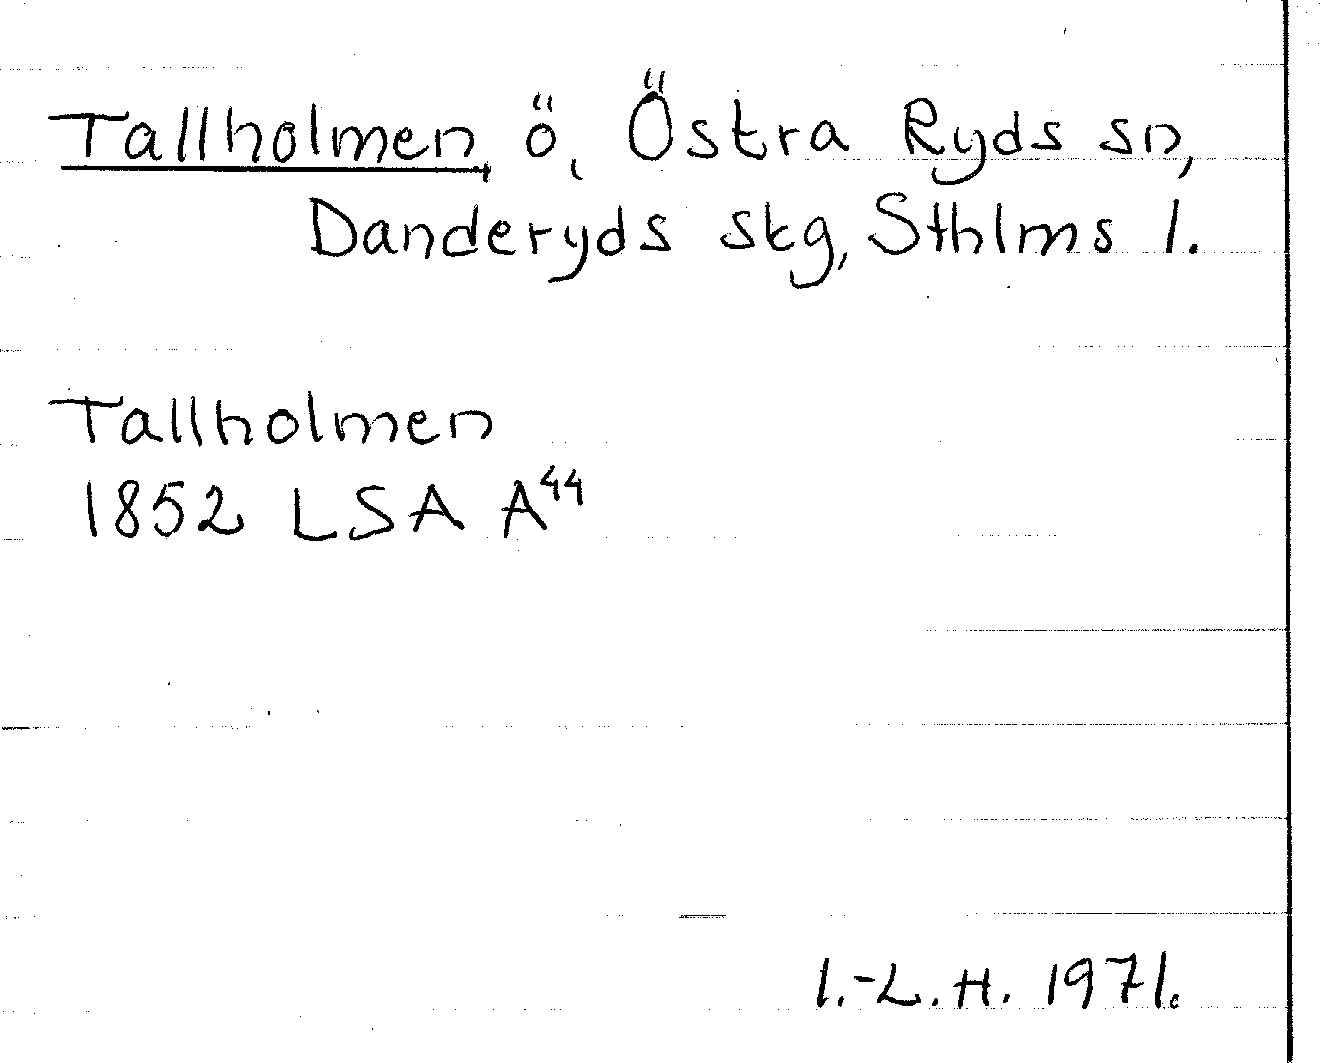 Tallholmen, ö, Östra Ryds sn,
Danderyds skg, Sthlms l.
Tallholmen
1852 LSA A44
I.-L.H. 1971.